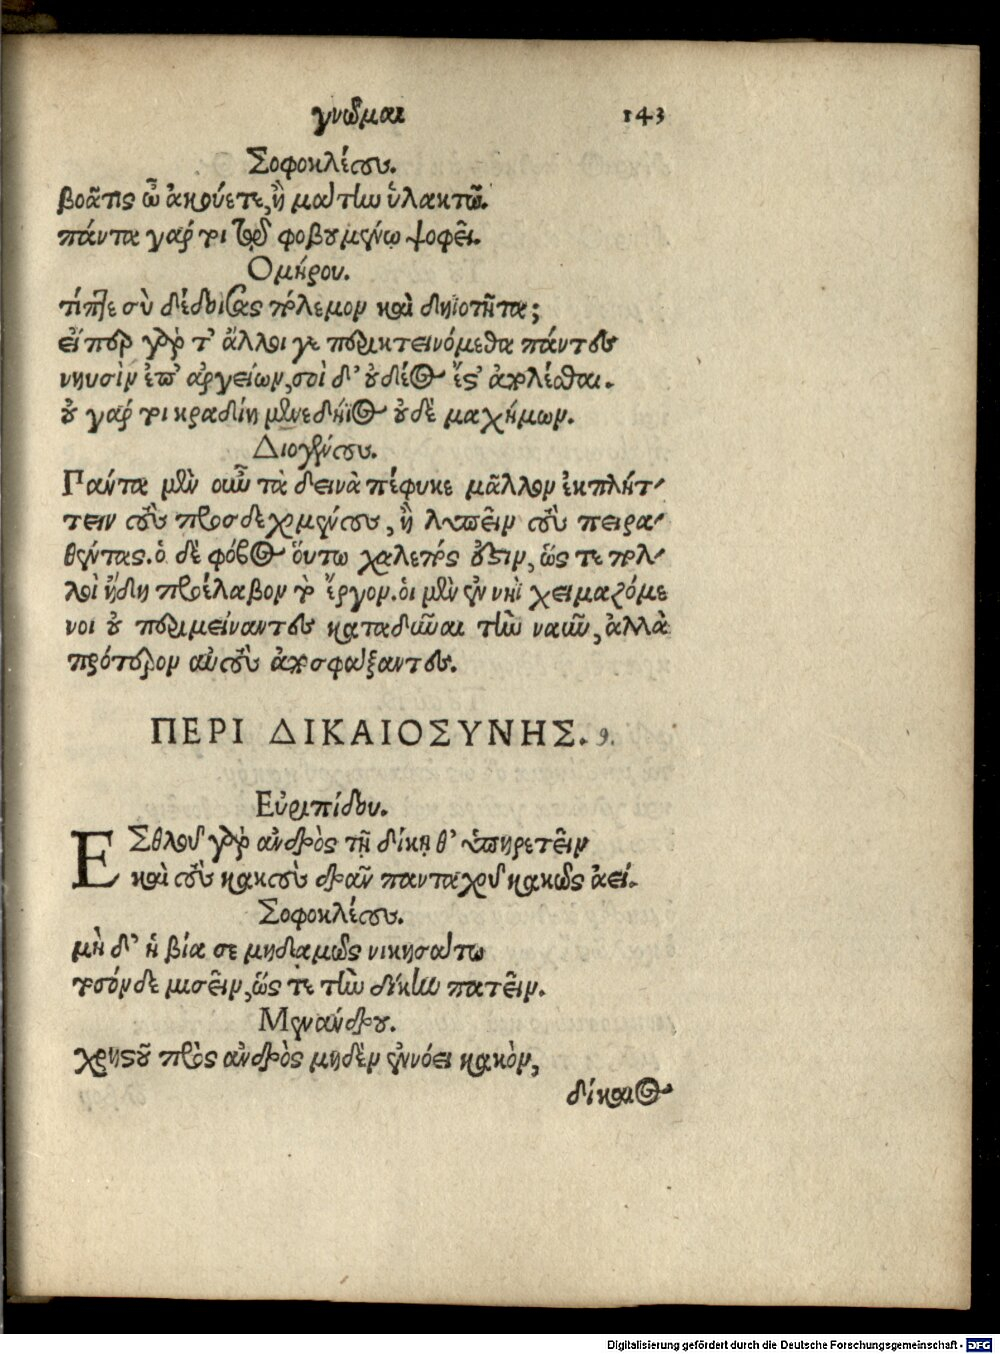 γνῶμαι 143
Σοφοκλέους.
βοᾶτις ὦ ἀκούετε, ἢ μάτην ὑλακτῶ.
πάντα γάρ τοι τῷ φοβουμένῳ ψοφεῖ.
Ομήρου.
τίπτε σὺ δέδοικας πόλεμον καὶ δηϊοτῆτα;
εἴπερ γάρ τ' ἄλλοι γε περικτεινόμεθα πάντες
νηυσὶν ἐπ' ἀργείων, σοὶ δ' οὐ δέος ἔστ' ἀπολέσθαι.
οὐ γάρ τοι κραδίη μενεδήϊος οὐδὲ μαχήμων.
Διογένους.
Πάντα μὲν οὖν τὰ δεινὰ πέφυκε μᾶλλον ἐκπλήτ-
τειν τοὺς προσδεχομένους, ἢ λυπεῖν τοὺς πειρα-
θέντας. ὁ δὲ φόβος οὕτω χαλεπός ἐστιν, ὥς τε πολ-
λοὶ ἤδη προέλαβον τὸ ἔργον. οἱ μὲν ἐν νηῒ χειμαζόμε
νοι οὐ περιμείναντες καταδῦναι τὴν ναῦν, ἀλλὰ
πρότερον αὑτοὺς ἀποσφάξαντες.
ΠΕΡΙ ΔΙΚΑΙΟΣΥΝΗΣ. 9.
Εὐριπίδου.
ΕΣθλοῦ γὰρ ἀνδρὸς τῇ δίκῃ θ' ὑπηρετεῖν
καὶ τοὺς κακοὺς δρᾶν πανταχοῦ κακῶς ἀεί.
Σοφοκλέους.
μὴ δ' ἡ βία σε μηδαμῶς νικησάτω
τοσόνδε μισεῖν, ὥς τε τὴν δίκην πατεῖν.
Μενάνδρου.
χρηστοῦ πρὸς ἀνδρὸς μηδὲν ἐννόει κακὸν,
δίκαιος
Digitalisierung gefördert durch die Deutsche Forschungsgemeinschaft - DFG